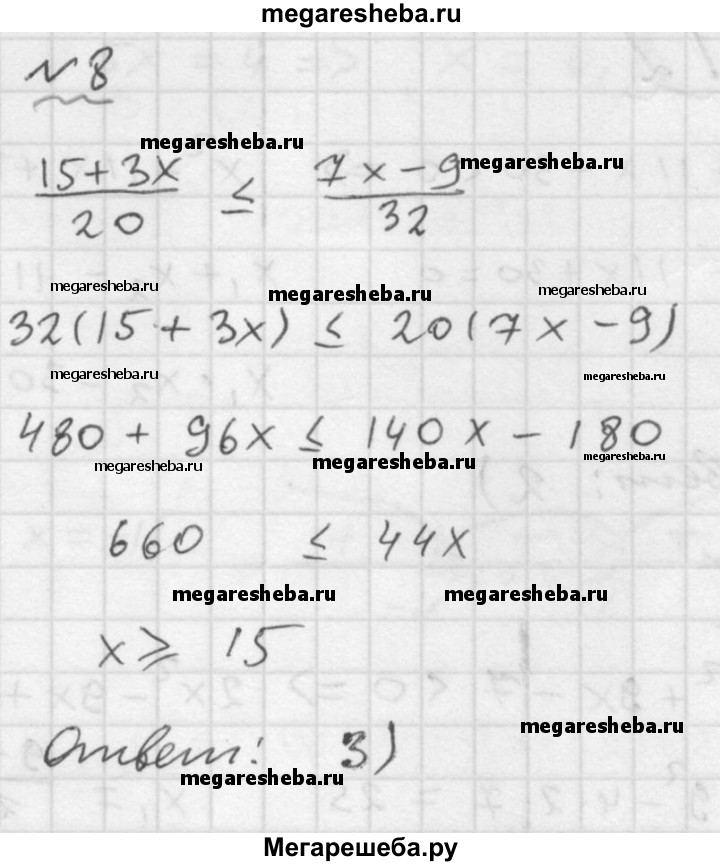 megaresheba.ru
№ 8
megaresheba.ru
megaresheba.ru
15 + 3x / 20 ≤ 7x - 9 / 32
megaresheba.ru
megaresheba.ru
megaresheba.ru
32(15 + 3x) ≤ 20(7x - 9)
megaresheba.ru
megaresheba.ru
480 + 96x ≤ 140x - 180
megaresheba.ru
megaresheba.ru
megaresheba.ru
660 ≤ 44x
megaresheba.ru
megaresheba.ru
x ⩾ 15
megaresheba.ru
Ответ: 3)
megaresheba.ru
Мегарешеба.ру